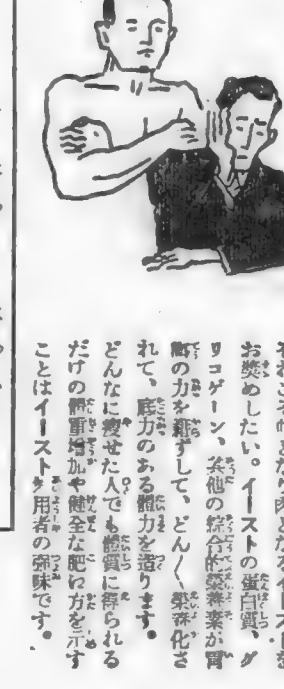 お奬めしたい。イーストの蛋白質、グ
リコゲーン、其他の綜合的榮養素が胃
の力を藉ずして、どん〱榮養化さ
れて、底力のある體力を造ります。
どんなに痩せた人でも體質に得られる
だけの體重増加や健全な肥り方を示す
ことはイースト愛用者の強味です。